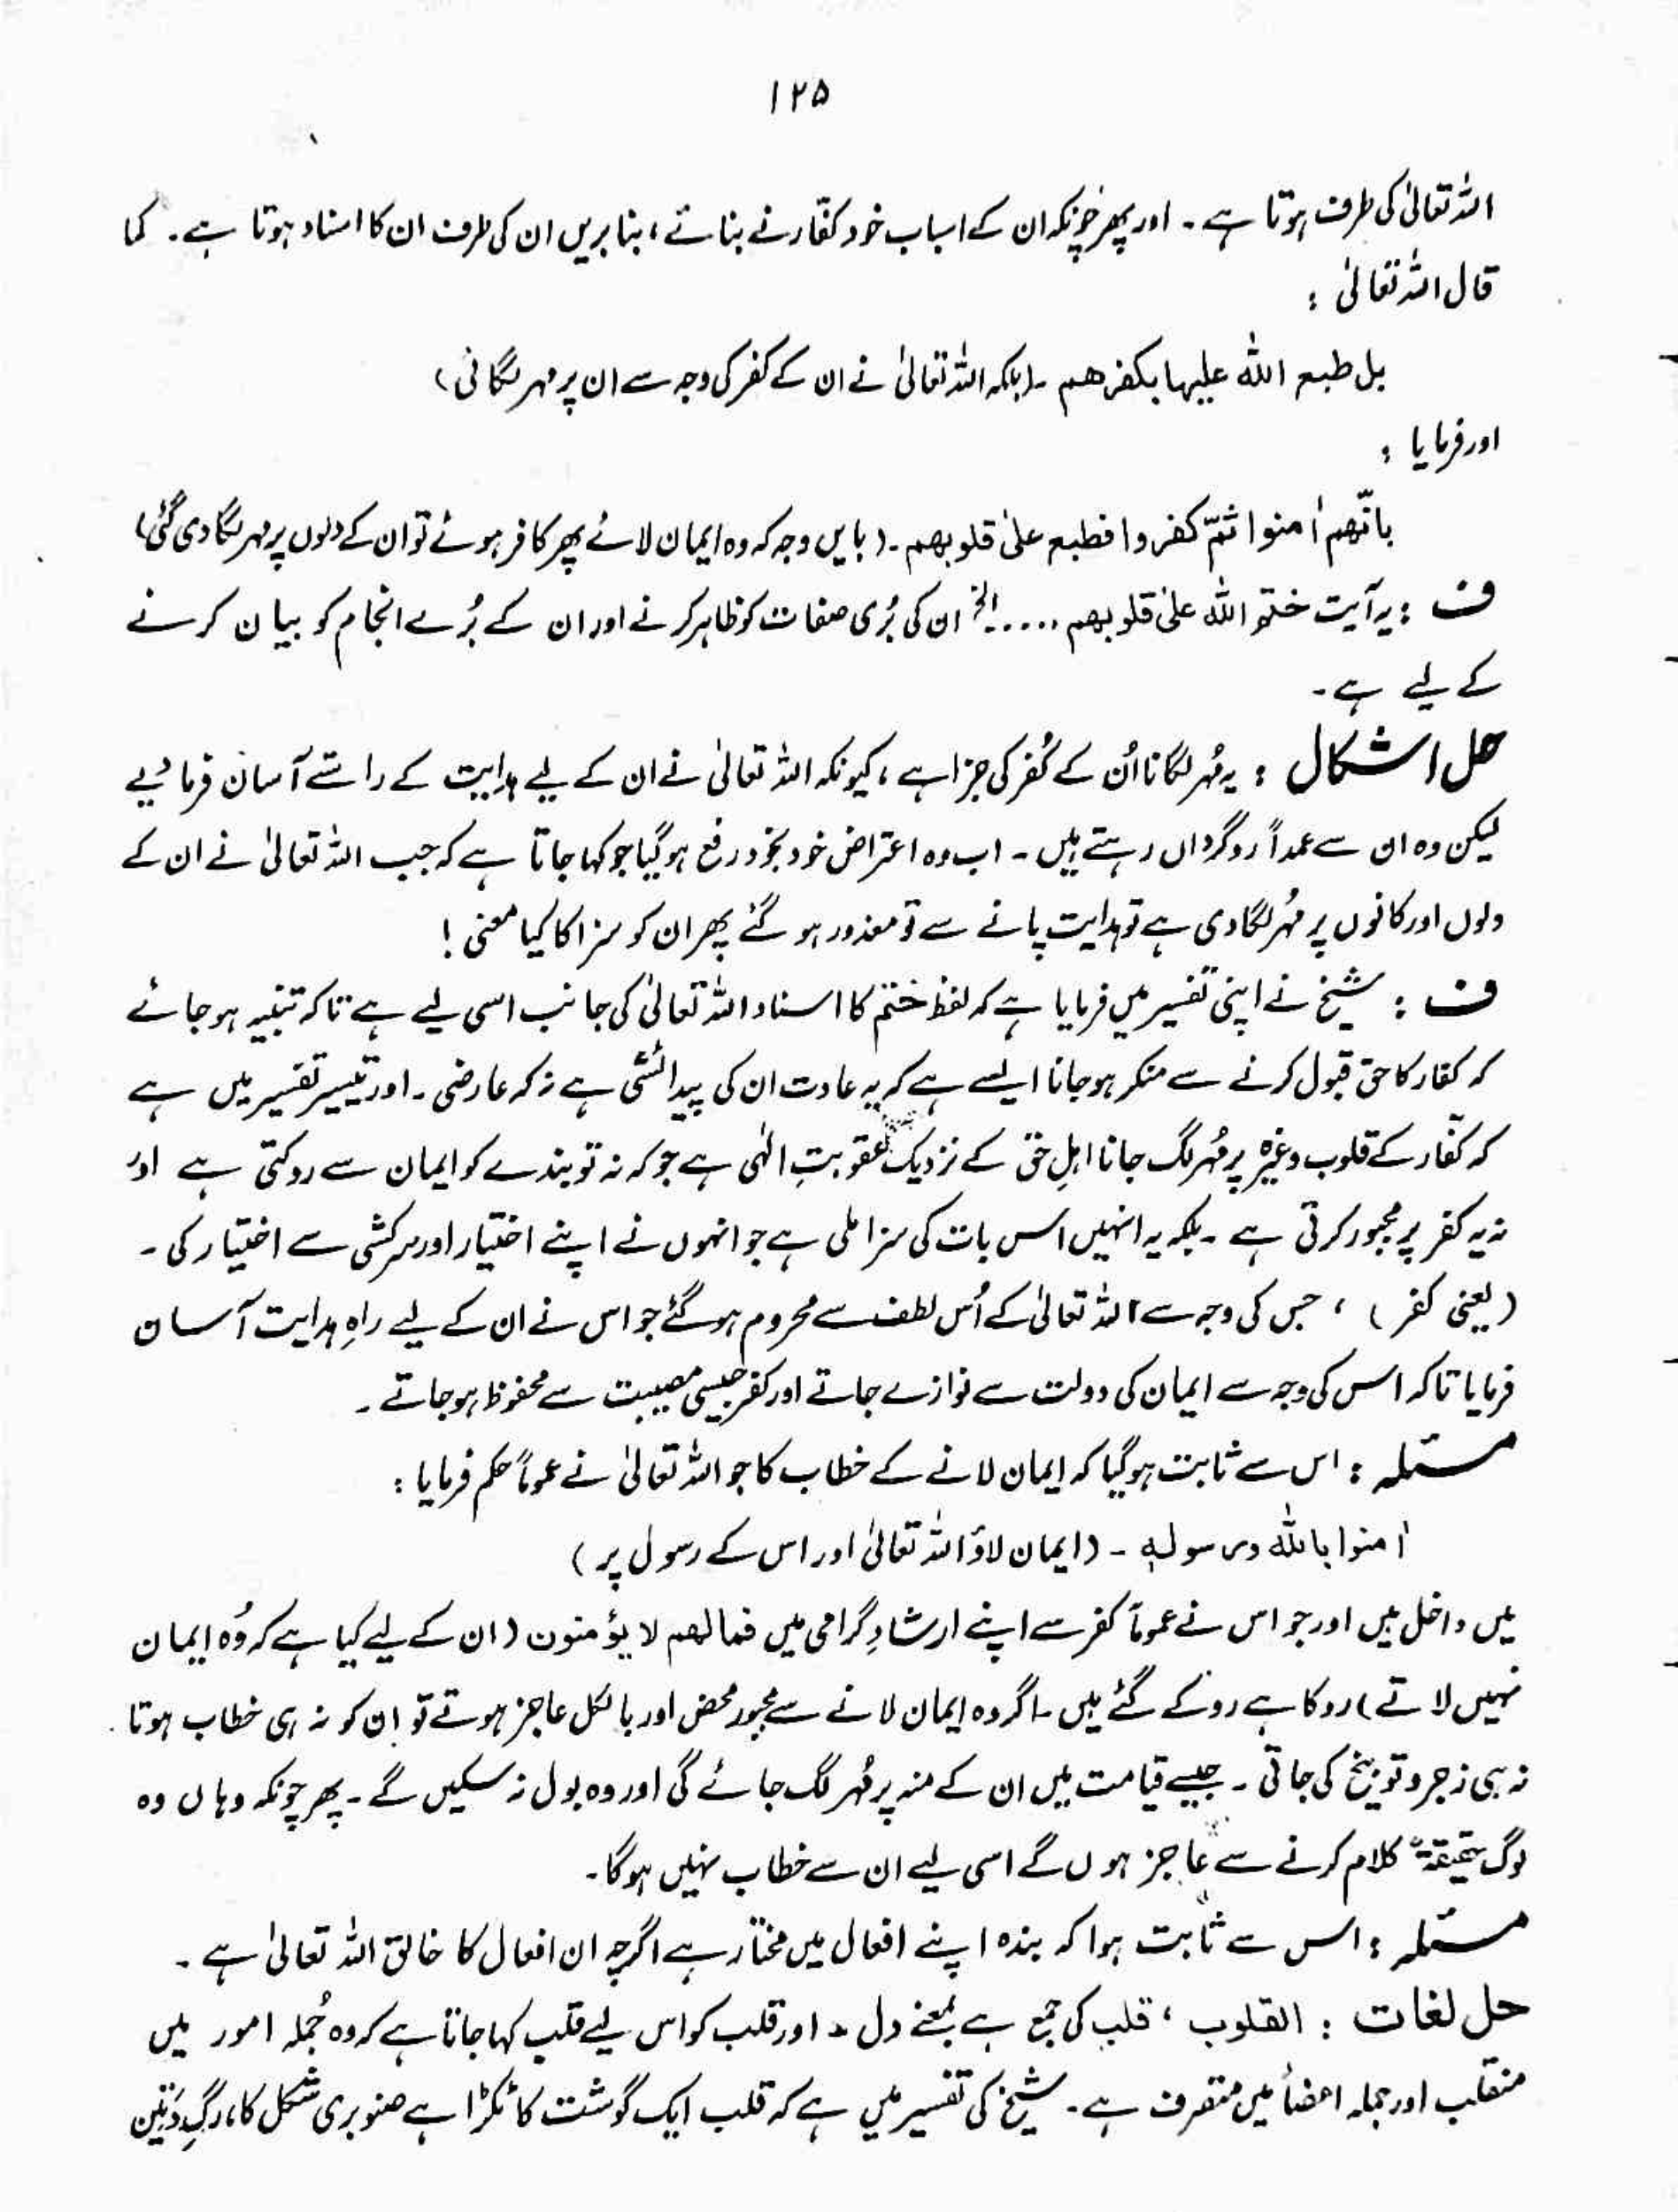 ۱۲۵
اللہ تعالیٰ کی طرف ہوتا ہے ۔ اور پھر چونکہ ان کے اسباب خود کفّار نے بنائے ، بنا بریں ان کی طرف ان کا اسناد ہوتا ہے ۔ کما
قال اللہ تعالیٰ :
بل طبع اللہ علیہا بکفرھم ۔ (بلکہ اللہ تعالیٰ نے ان کے کفر کی وجہ سے ان پر مہر لگائی )
اور فرمایا :
بانّھم اٰمنوا ثمّ کفروا فطبع علیٰ قلوبھم ۔ ( بایں وجہ کہ وہ ایمان لائے پھر کافر ہوئے تو ان کے دلوں پر مہر لگا دی گئی )
ف : یہ آیت ختم اللہ علیٰ قلوبھم .... الخ ان کی بُری صفات کو ظاہر کرنے اور ان کے بُرے انجام کو بیان کرنے
کے لیے ہے ۔
حل اشکال : یہ مُہر لگانا اُن کے کُفر کی جزا ہے ، کیونکہ اللہ تعالیٰ نے ان کے لیے ہدایت کے راستے آسان فرما دیے
لیکن وہ ان سے عمداً روگرداں رہتے ہیں ۔ اب وہ اعتراض خود بخود رفع ہوگیا جو کہا جاتا ہے کہ جب اللہ تعالیٰ نے ان کے
دلوں اور کانوں پر مُہر لگا دی ہے تو ہدایت پانے سے تو معذور ہو گئے پھر ان کو سزا کا کیا معنی !
ف : شیخ نے اپنی تفسیر میں فرمایا ہے کہ لفظ ختم کا اسناد اللہ تعالیٰ کی جانب اسی لیے ہے تاکہ تنبیہ ہو جائے
کہ کفار کا حق قبول کرنے سے منکر ہو جانا ایسے ہے کہ یہ عادت ان کی پیدائشی ہے نہ کہ عارضی ۔ اور تیسیر تفسیر میں ہے
کہ کفّار کے قلوب وغیرہ پر مُہر لگ جانا اہلِ حق کے نزدیک عقوبتِ الٰہی ہے جو کہ نہ تو بندے کو ایمان سے روکتی ہے اور
نہ یہ کفر پر مجبور کرتی ہے ۔ بلکہ یہ انہیں اس بات کی سزا ملی ہے جو انھوں نے اپنے اختیار اور سرکشی سے اختیار کی ۔
( یعنی کفر ) ، جس کی وجہ سے اللہ تعالیٰ کے اُس لطف سے محروم ہو گئے جو اس نے ان کے لیے راہِ ہدایت آسان
فرمایا تاکہ اس کی وجہ سے ایمان کی دولت سے نوازے جاتے اور کفر جیسی مصیبت سے محفوظ ہو جاتے ۔
مسئلہ : اس سے ثابت ہوگیا کہ ایمان لانے کے خطاب کا جو اللہ تعالیٰ نے عموماً حکم فرمایا :
اٰمنوا باللہ ورسولہٖ ۔ ( ایمان لاؤ اللہ تعالیٰ اور اس کے رسول پر )
میں داخل ہیں اور جو اس نے عموماً کفر سے اپنے ارشادِ گرامی میں فمالھم لا یؤمنون ( ان کے لیے کیا ہے کہ وُہ ایمان
نہیں لاتے ) روکا ہے روکے گئے ہیں ۔ اگر وہ ایمان لانے سے مجبور محض اور بالکل عاجز ہوتے تو ان کو نہ ہی خطاب ہوتا
نہ ہی زجر و توبیخ کی جاتی ۔ جیسے قیامت میں ان کے منہ پر مُہر لگ جائے گی اور وہ بول نہ سکیں گے ۔ پھر چونکہ وہاں وہ
لوگ حقیقۃً کلام کرنے سے عاجز ہوں گے اسی لیے ان سے خطاب نہیں ہوگا ۔
مسئلہ : اس سے ثابت ہوا کہ بندہ اپنے افعال میں مختار ہے اگرچہ ان افعال کا خالق اللہ تعالیٰ ہے ۔
حل لغات : القلوب ، قلب کی جمع ہے بمعنے دل ۔ اور قلب کو اس لیے قلب کہا جاتا ہے کہ وہ جُملہ امور میں
منقلب اور جملہ اعضأ میں متصرف ہے ۔ شیخ کی تفسیر میں ہے کہ قلب ایک گوشت کا ٹکڑا ہے صنوبری شکل کا ، رگِ وَتین